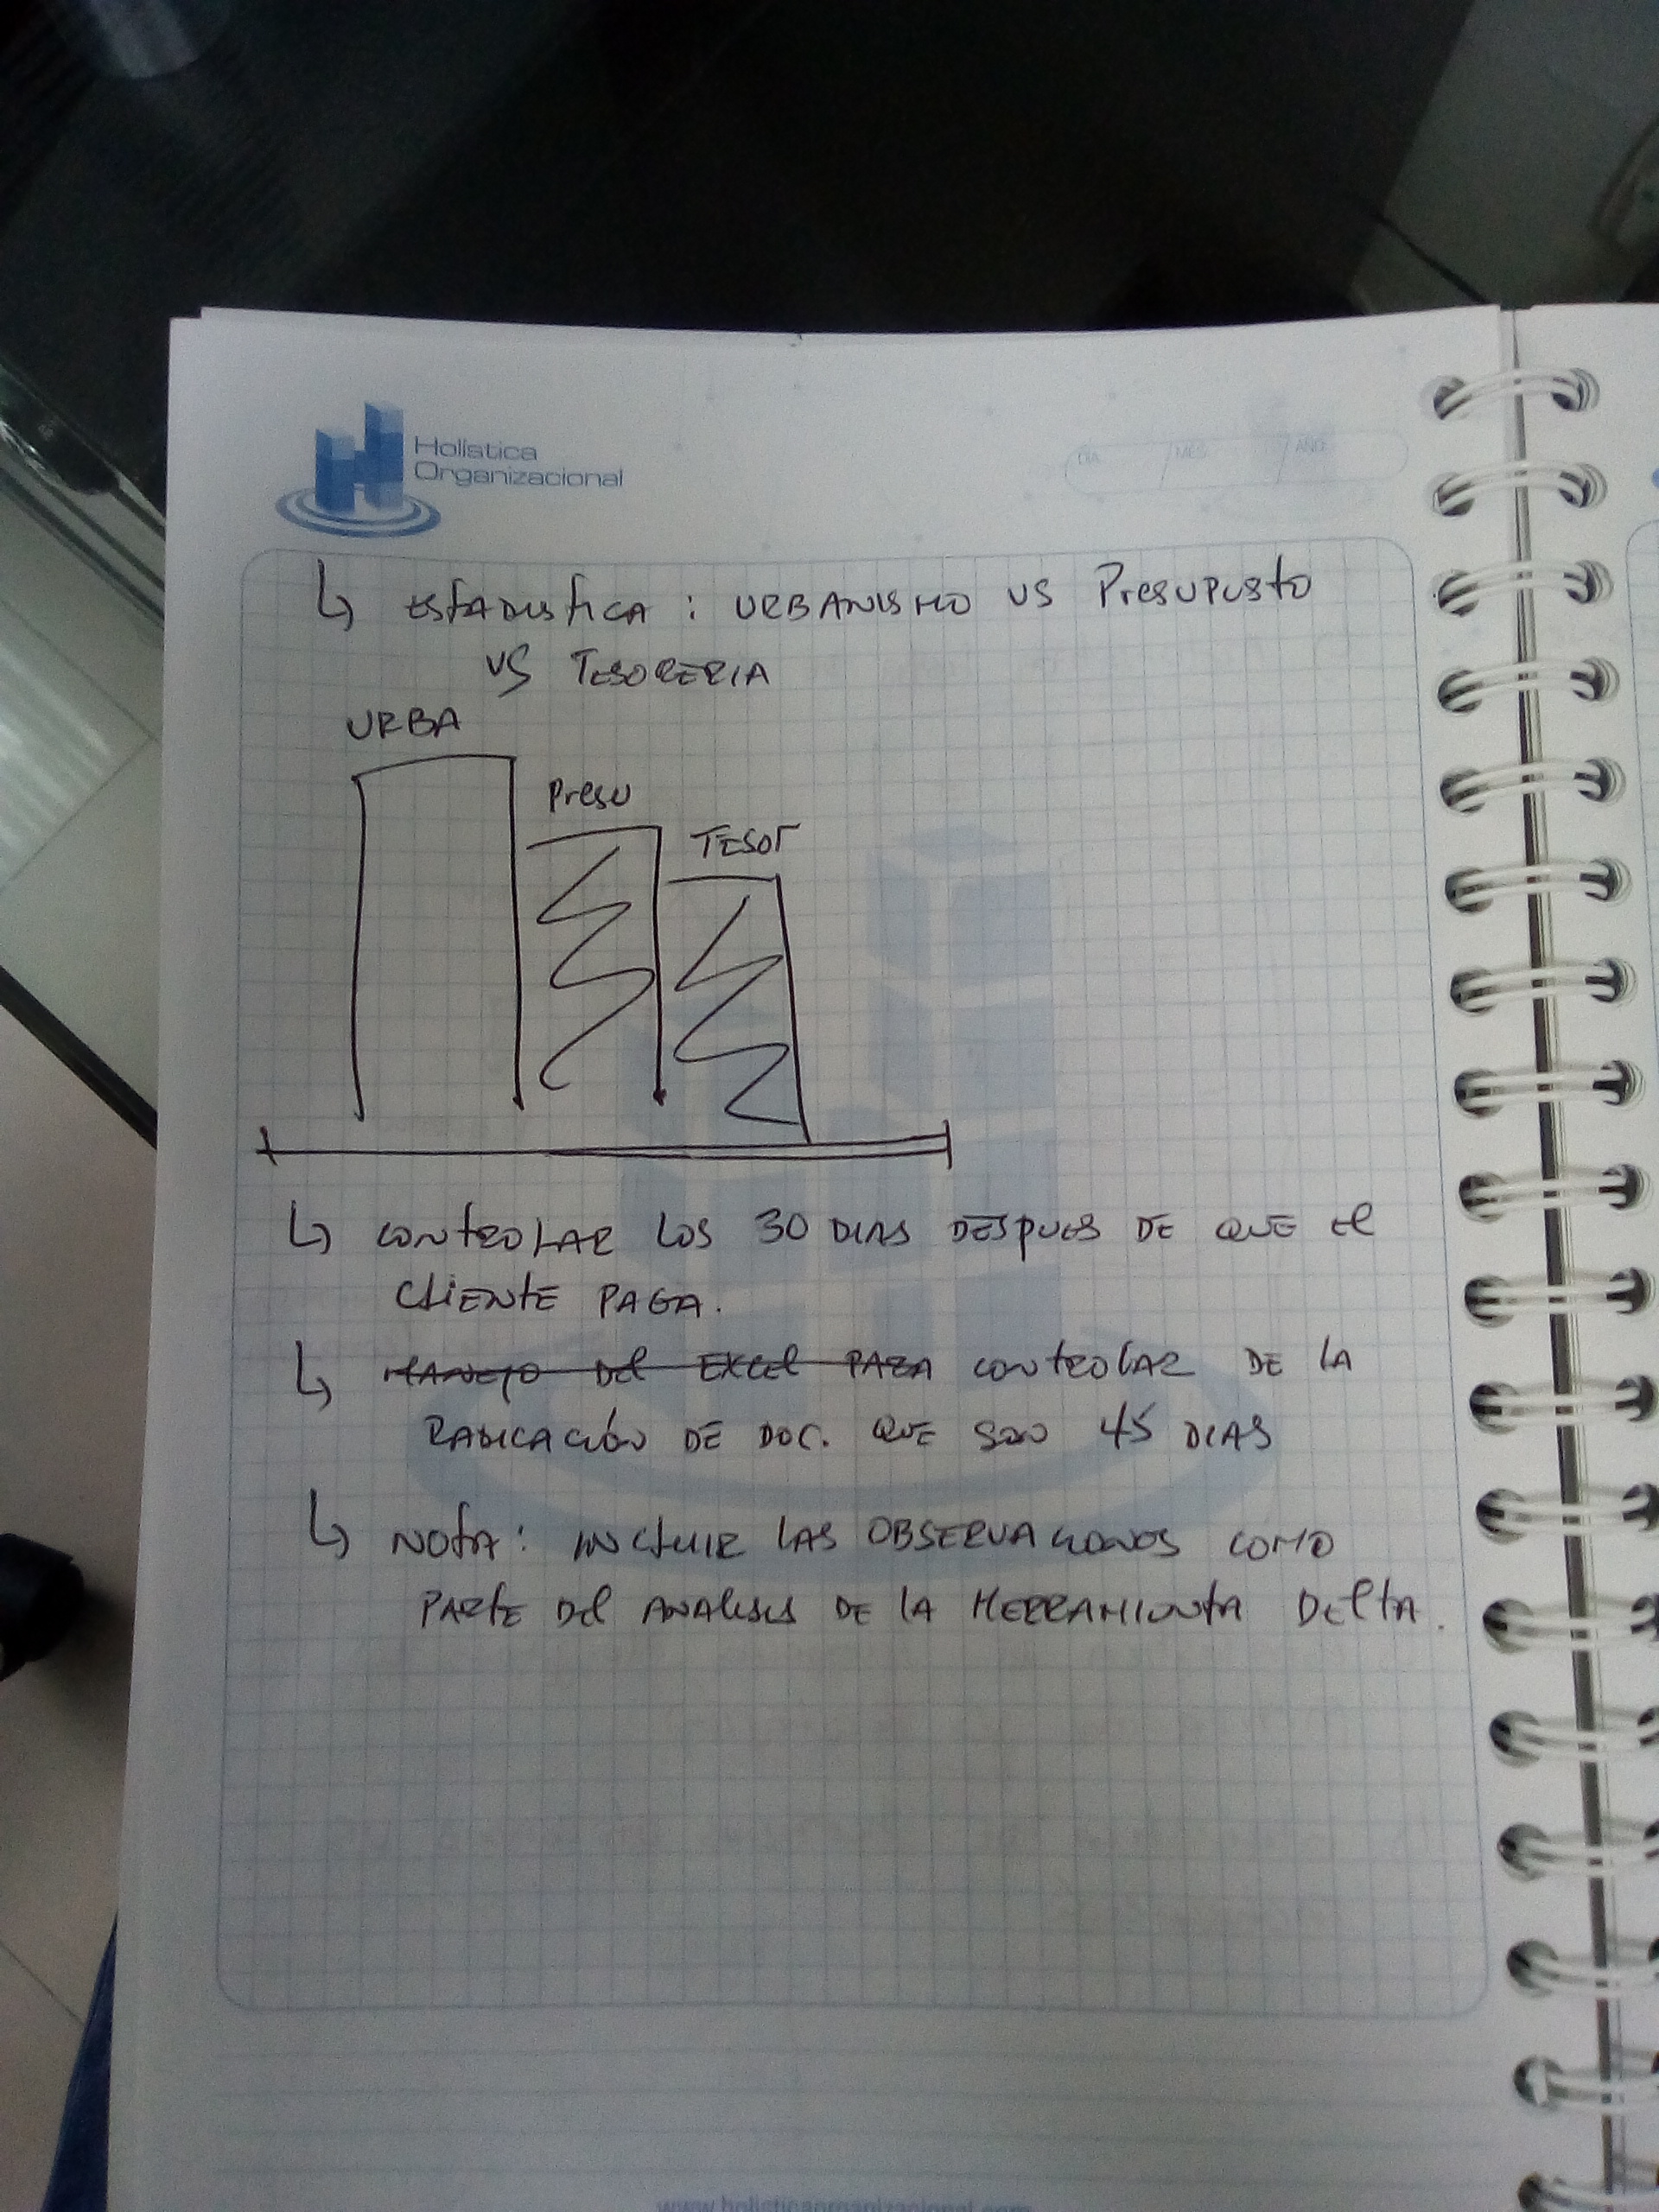 Holística
Organizacional
DIA MES AÑO
↳ ESTADISTICA : URBANISMO VS PRESUPUSTO
VS TESORERIA
URBA
Presu
TESOR
↳ CONTROLAR LOS 30 DIAS DESPUES DE QUE EL
CLIENTE PAGA.
↳ MANEJO DEL EXCEL PARA CONTROLAR DE LA
RADICACIÓN DE DOC. QUE SON 45 DIAS
↳ NOTA : INCLUIR LAS OBSERVACIONES COMO
PARTE DEL ANALISIS DE LA HERRAMIENTA DELTA.
www.holisticaorganizacional.com